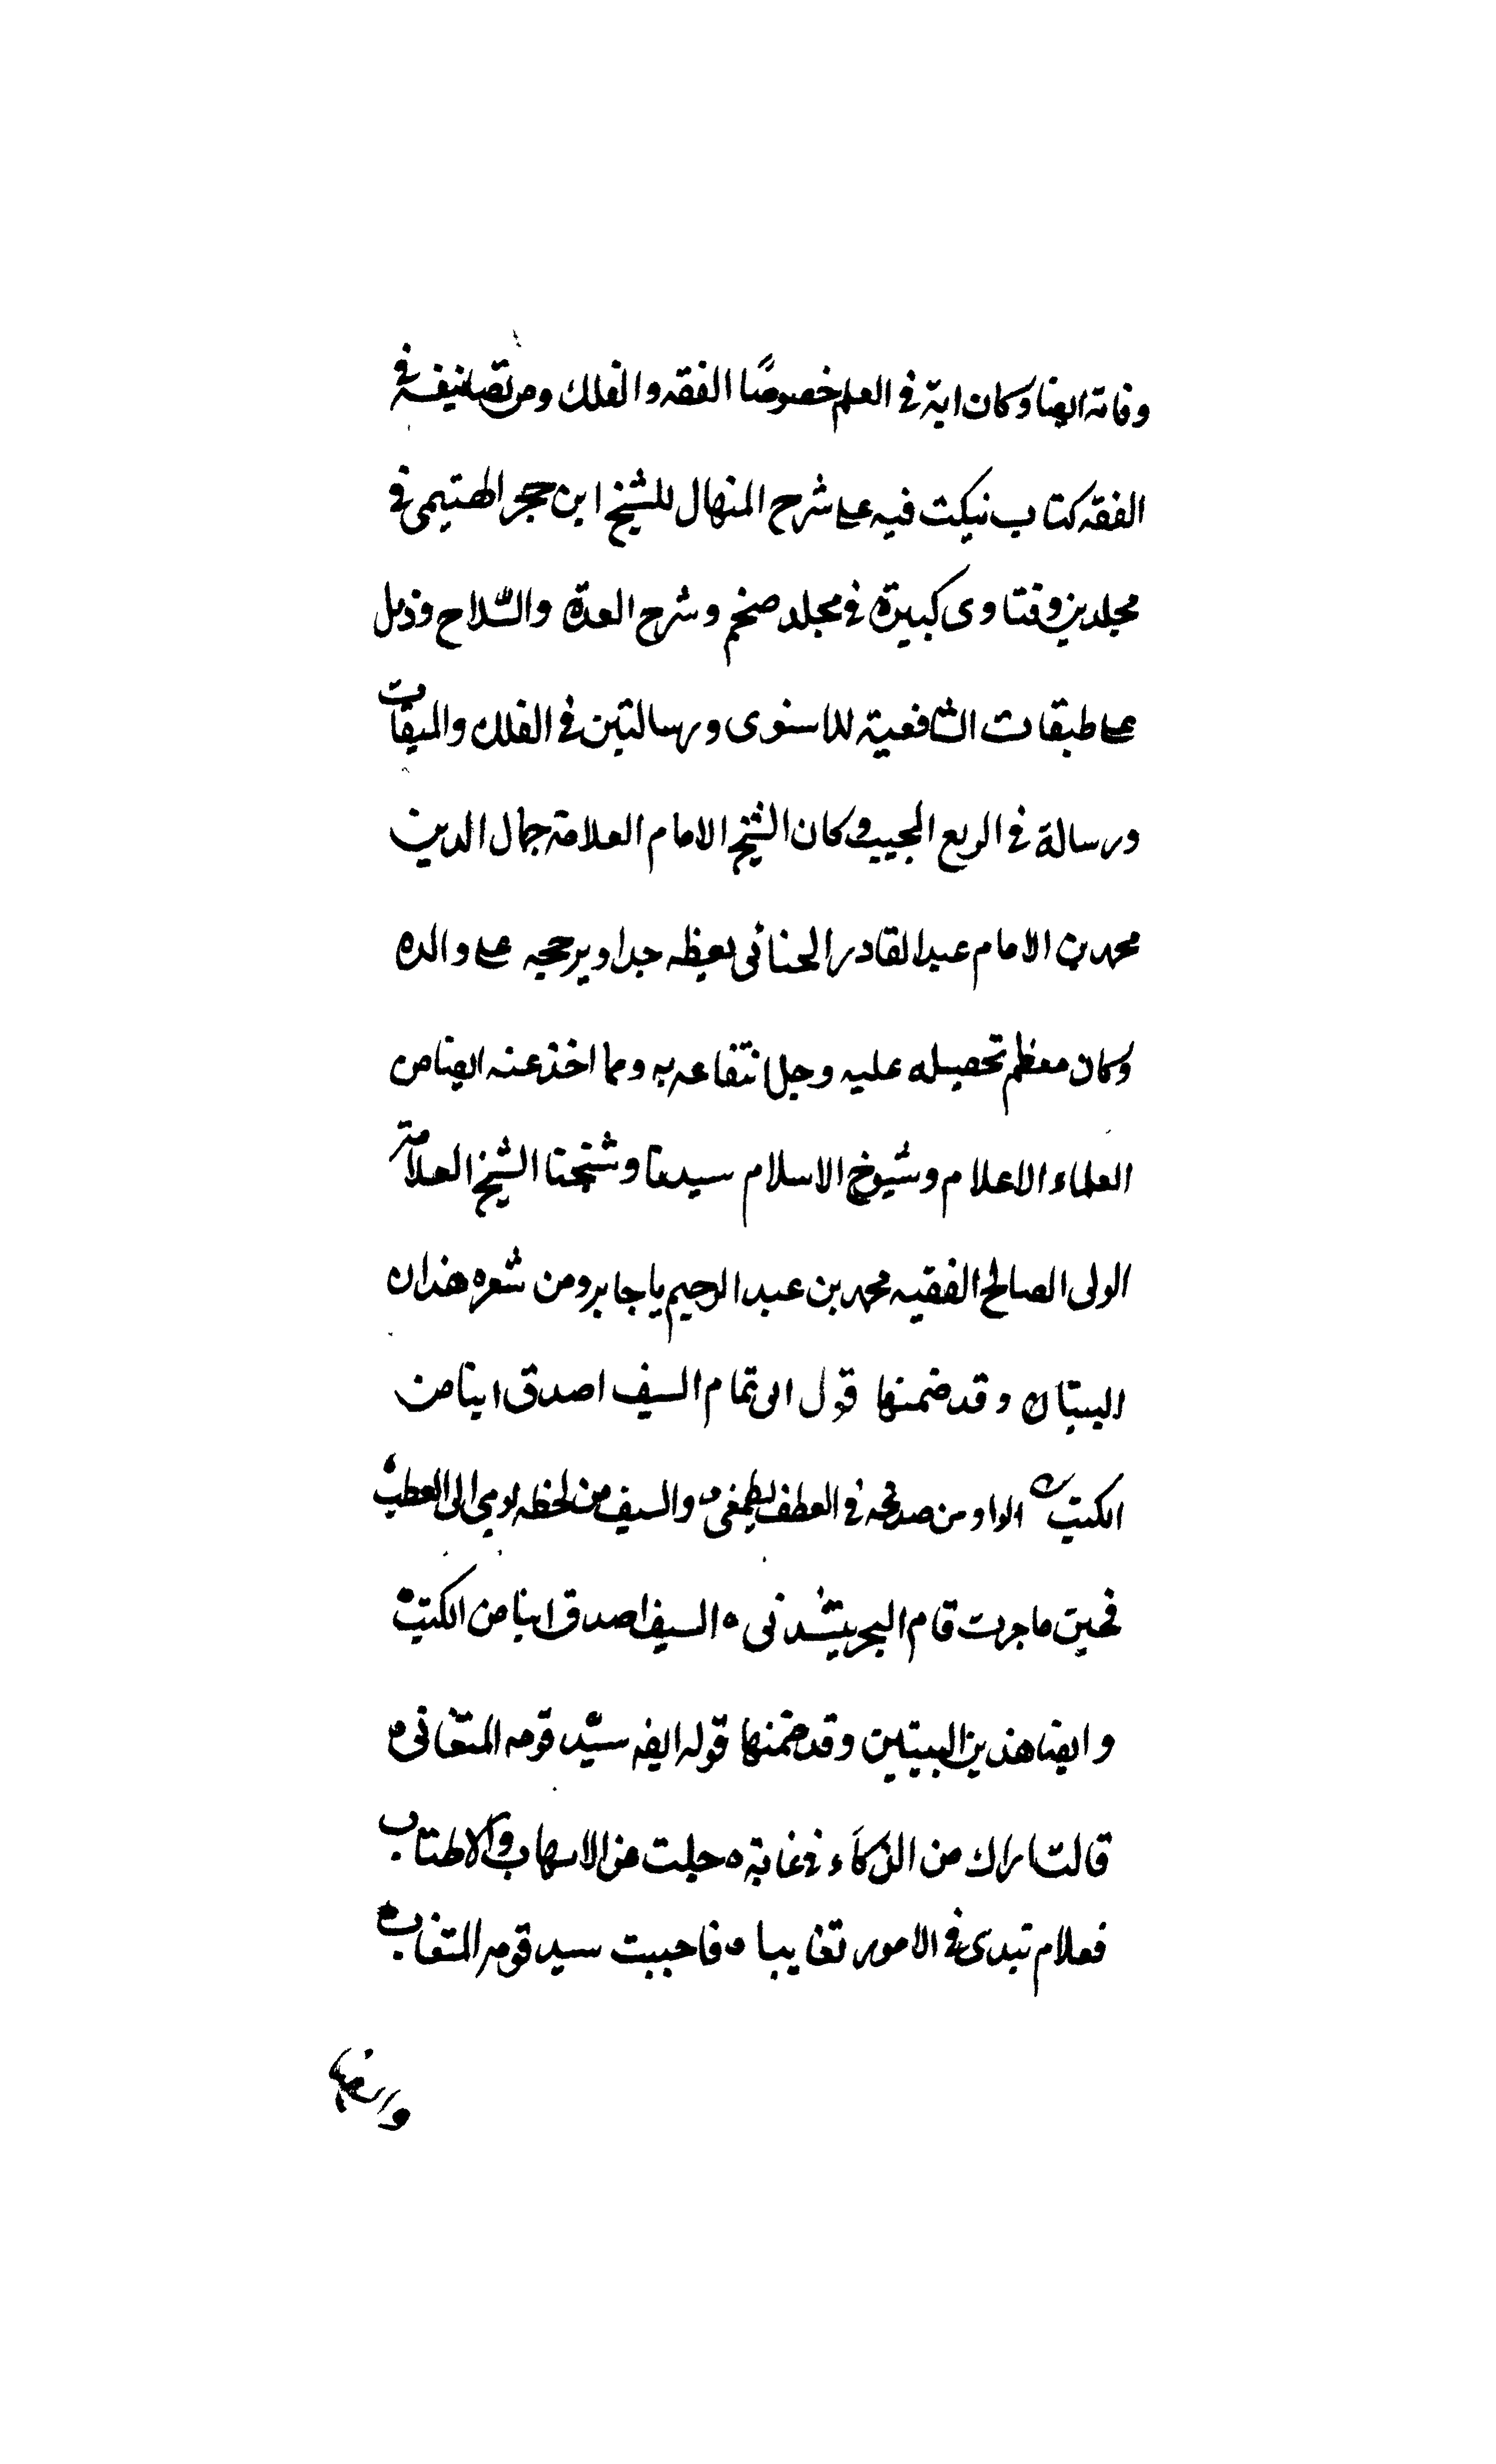 وفاته ايضا وكان اية في العلم خصوصًا الفقه والفلك ومن تصانيفه في
الفقه كتاب نيكت فيه على شرح المنهال للشيخ ابن حجر الهتيمى في
مجلدين وفتاوى كبيرة في مجلد ضخم وشرح العدة والسّلاح وذيل
على طبقات الشافعية للاسنوى ورسالتين في الفلك والميقات
ورسالة في الربع المجيب وكان الشيخ الامام العلامة جمال الدين
محمد بن الامام عبد القادر الحنانى يعيظه جدا ويرجحه على والده
وكان معظم تحصيله عليه وجل انتفاعه به ومما اخذ عنه ايضا من
العلماء الاعلام وشيوخ الاسلام سيدنا وشيخنا الشيخ العلامة
الولى الصالح الفقيه محمد بن عبد الرحيم باجابر ومن شعره هذان
البيتان وقد ضمنها قول ابى تمام السيف اصدق ابنا من
الكتب الواو من صدغه في العطف يطمغى والسيف من لحظه يومي الى العطب
فحين ما جردت قام البحر ينشدنى السيف اصدق ابنا من الكتب
وايضا هذين البيتين وقد ضمنها قوله ايضه سيّد قومه المتغانى
قالت اراك من الذكاء في غاية جلت عن الاسهاب والاطناب
فعلام تبدى في الامور تغايبا فاجبت سيد قومه المتغاب
وايضا